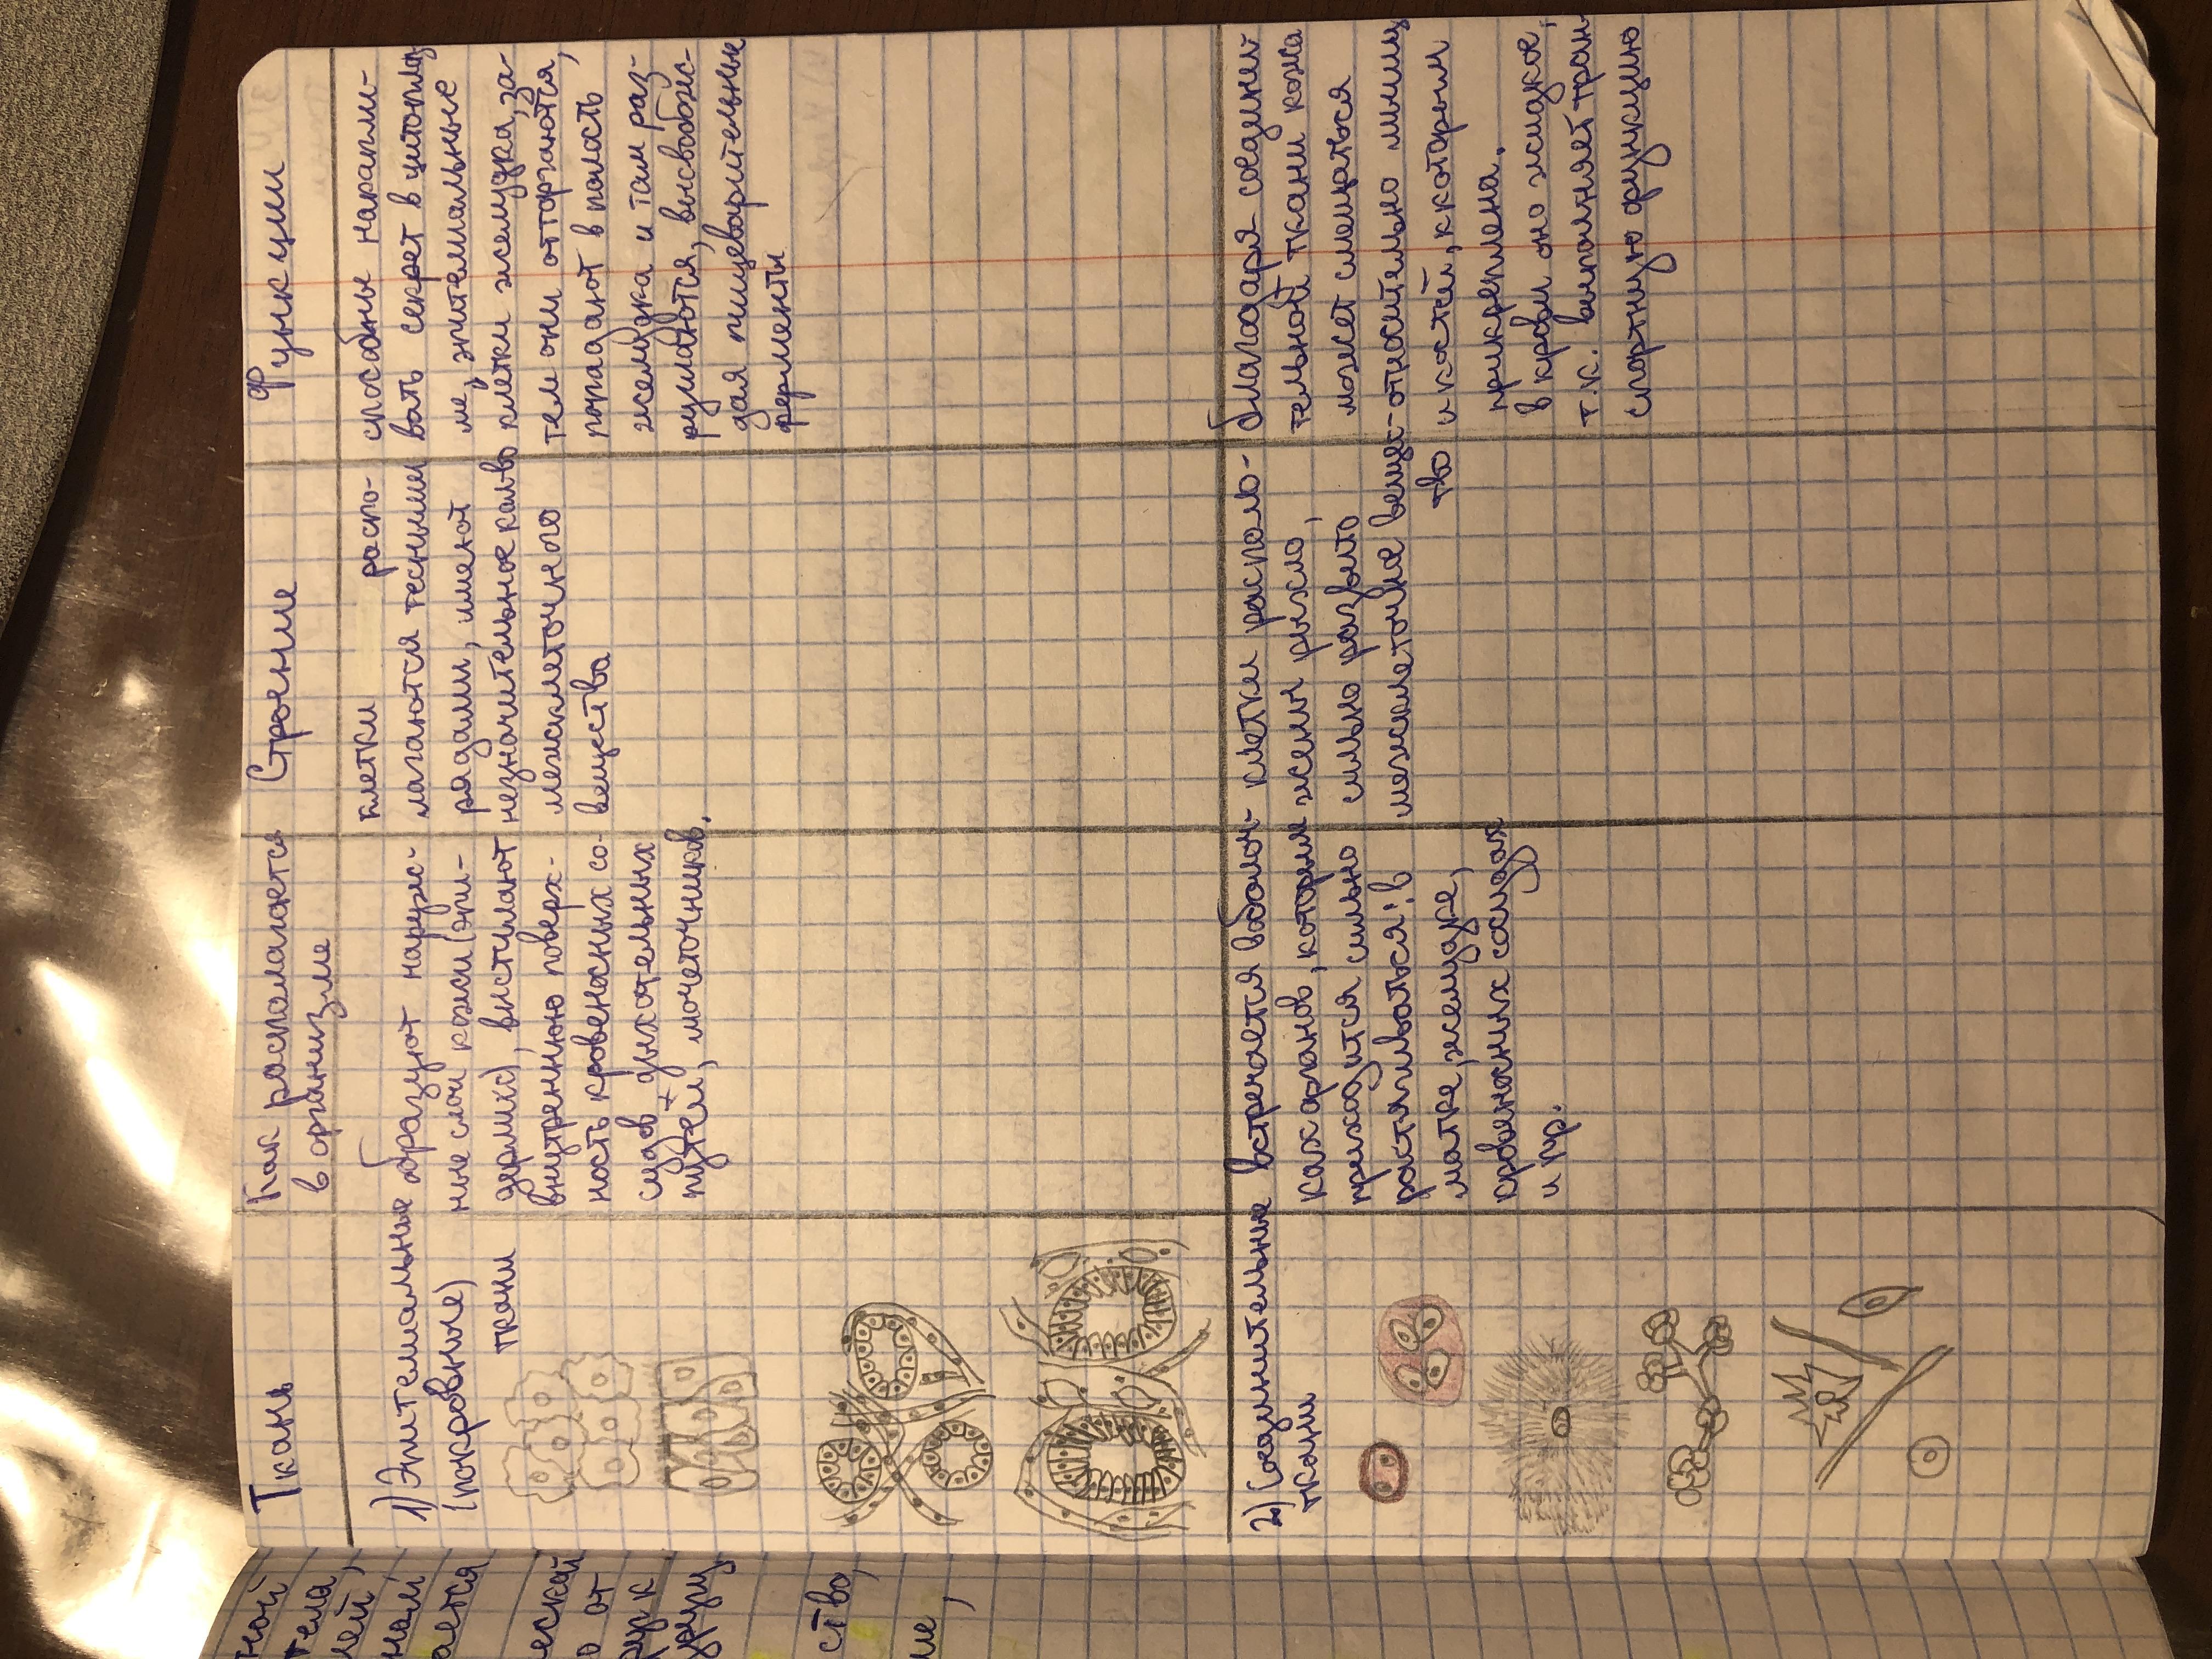 Ткань
Как располагаются
в организме
Строение
Функции
1) Эпителиальные
(покровные)
ткани
образуют наруж-
ные слои кожи (эпи-
дермис), выстилают
внутреннюю поверх-
ность кровеносных со-
судов, дыхательных
путей, мочеточников.
клетки распо-
лагаются тесными
рядами, имеют
незначительное кол-во
межклеточного
вещества
способны накапли-
вать секрет в цитоплаз
ме, эпителиальные
клетки желудка, за-
тем они отторгаются,
попадают в полость
желудка и там раз-
рушаются, высвобож-
дая пищеварительные
ферменты
2) Соединительные
ткани
встречается в оболоч-
ках органов, которым
приходится сильно
растягиваться: в
матке, желудке,
кровеносных сосудах
и пр.
клетки располо-
жены рыхло,
сильно развито
межклеточное вещес-
тво
благодаря соедини-
тельной ткани кожа
может смещаться
относительно мышц
и костей, к которым
прикреплена.
в крови оно жидкое,
т.к. выполняет тран
спортную функцию
ной
тела
лей,
ной
ается
еской
о от
рук
ство,
ие,